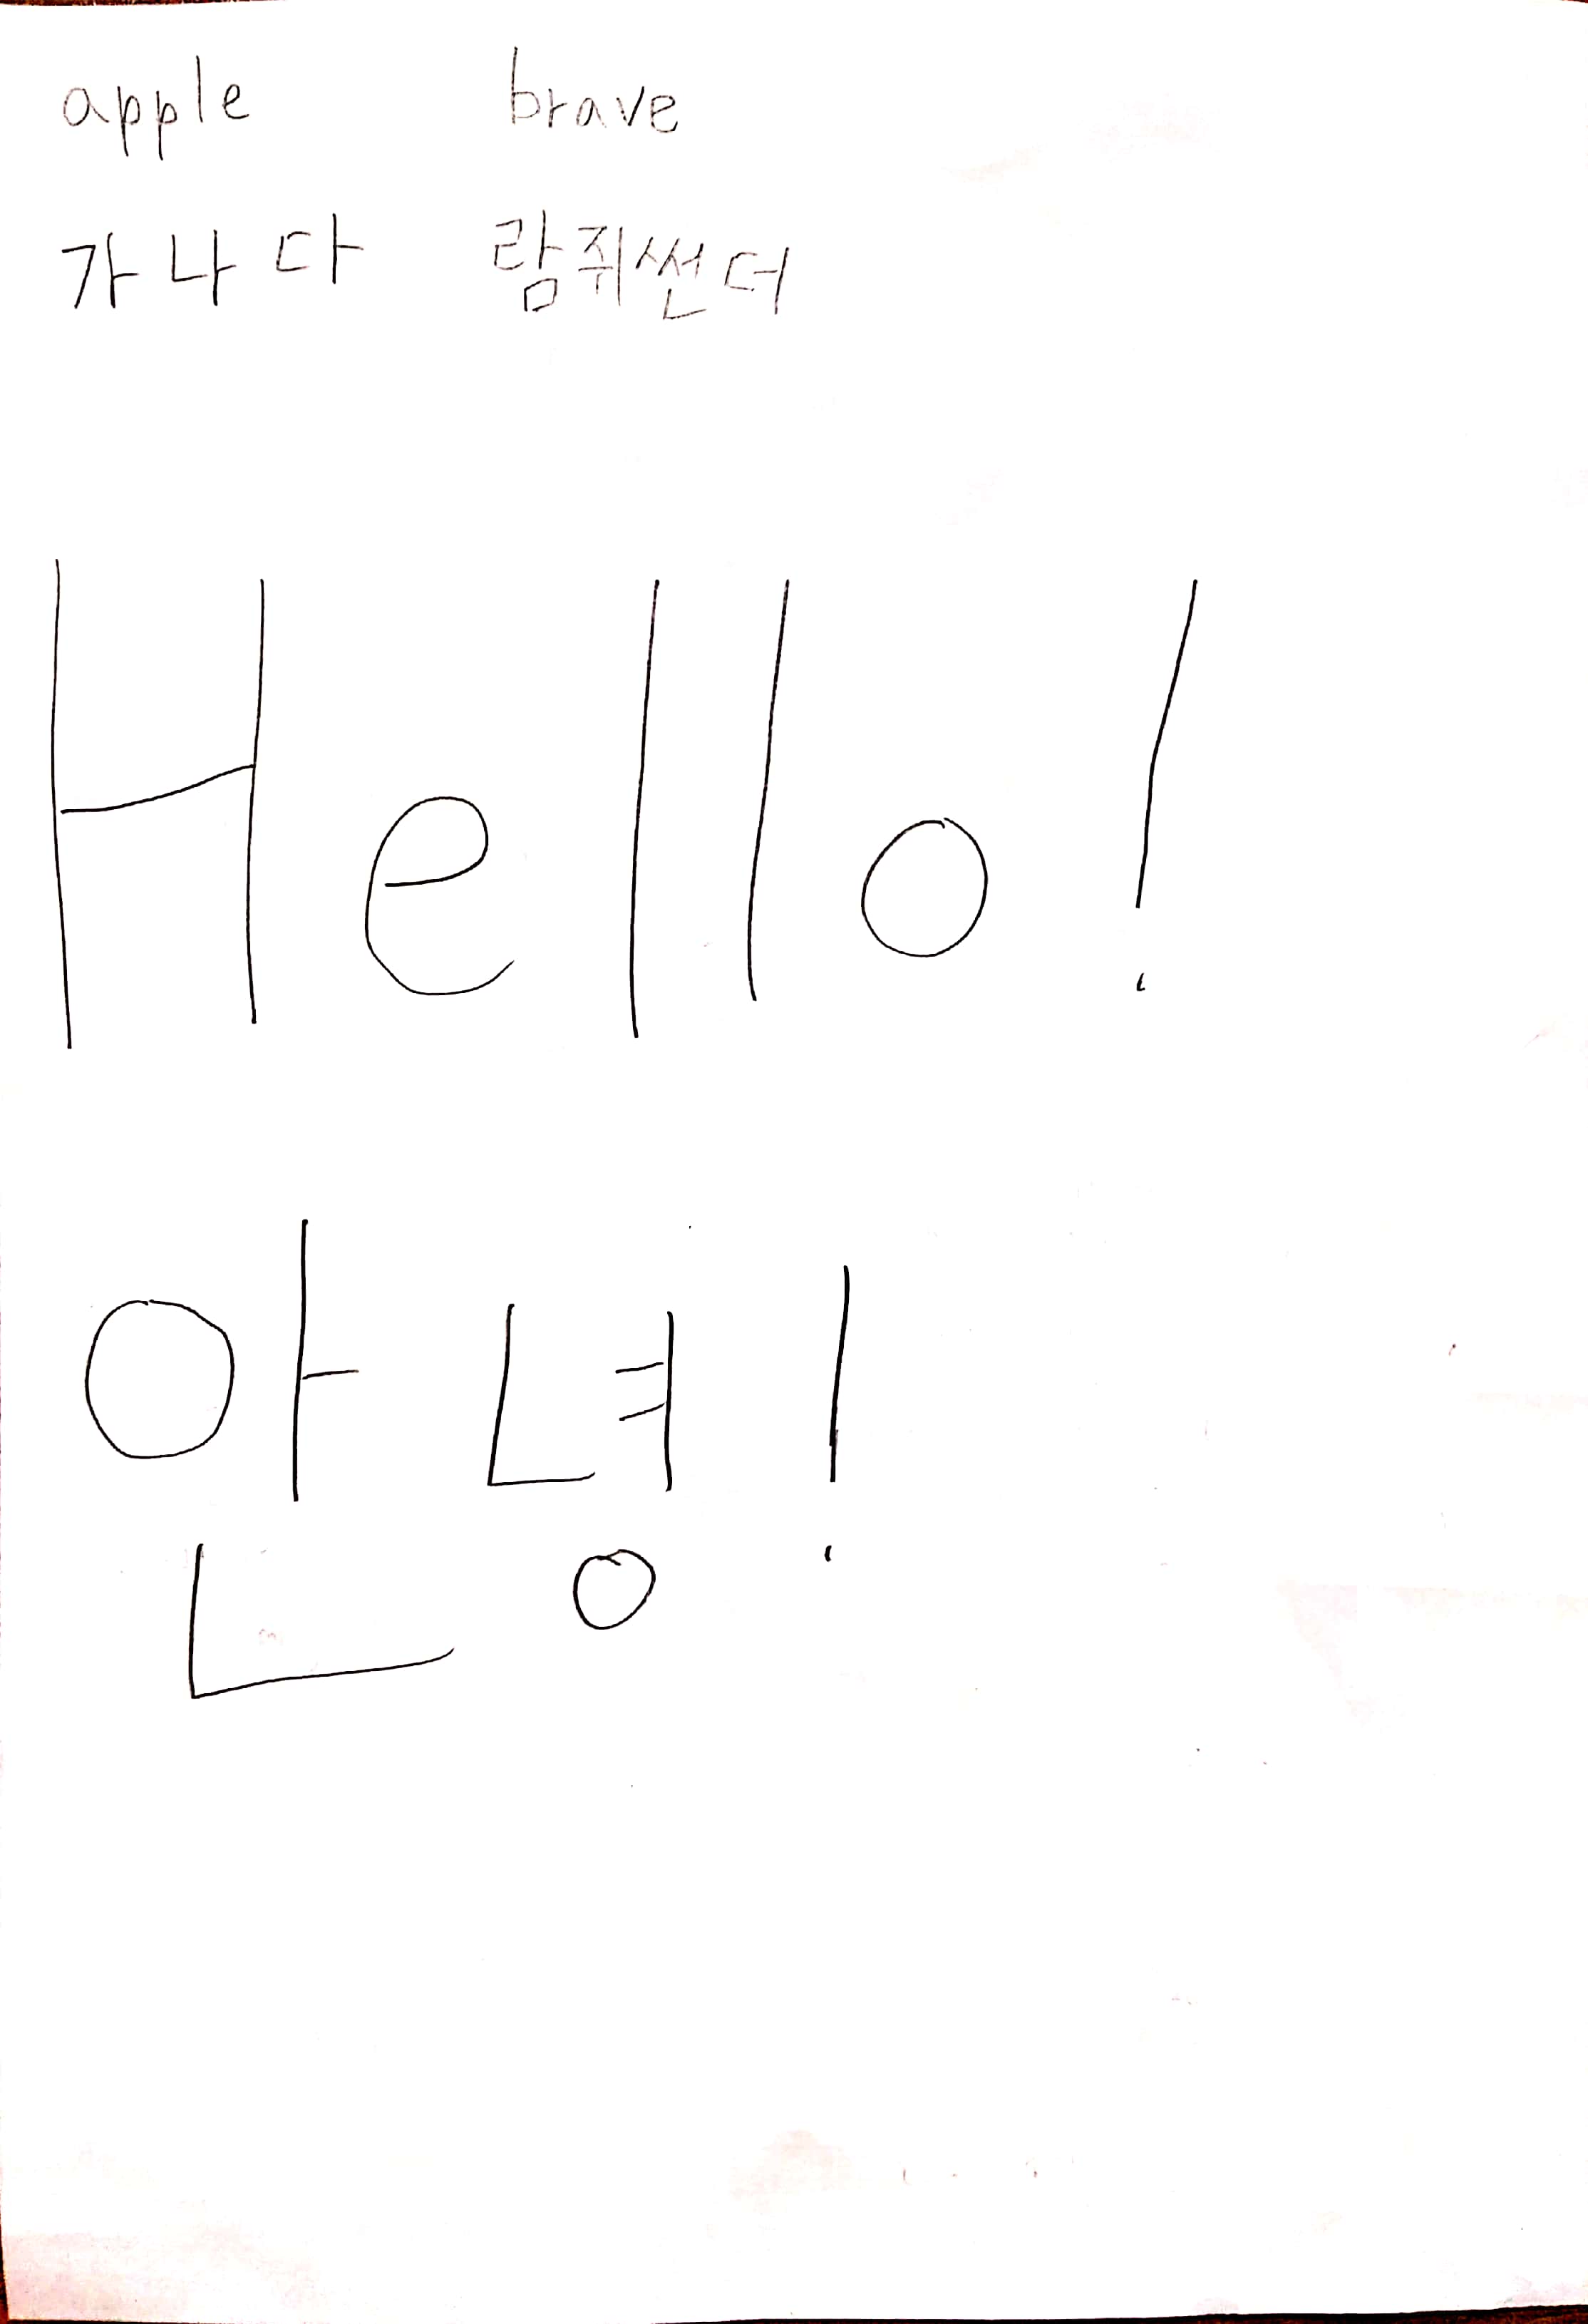 apple brave
가나다 람쥐썬더
Hello!
안녕!